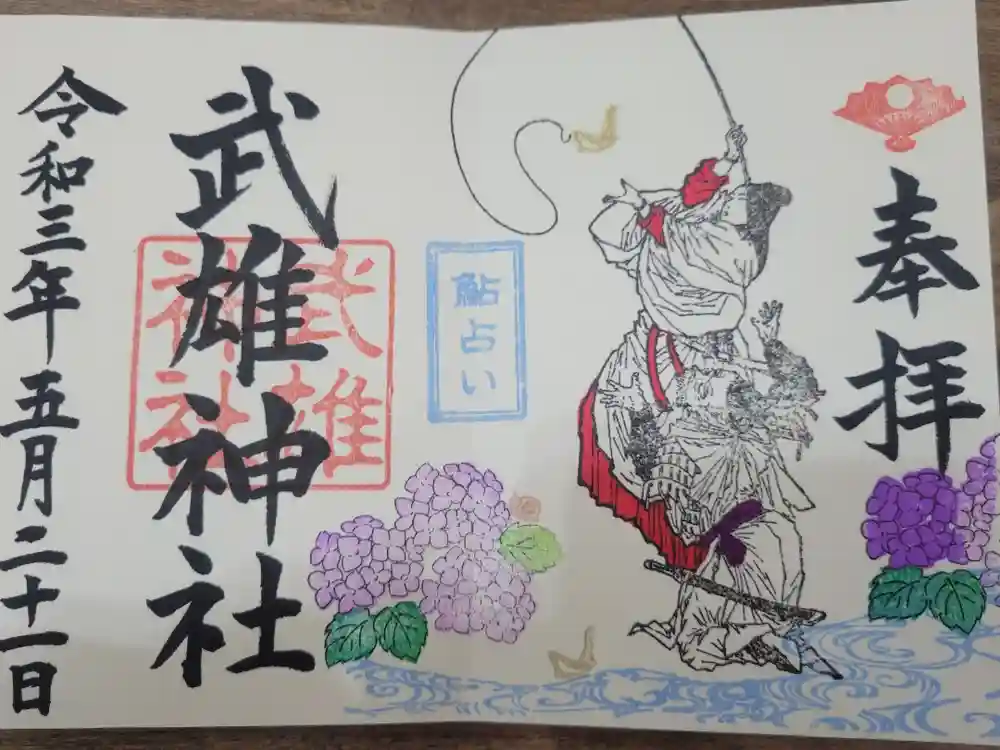 奉拝
鮎占い
武雄神社
武雄
神社
令和三年五月二十一日